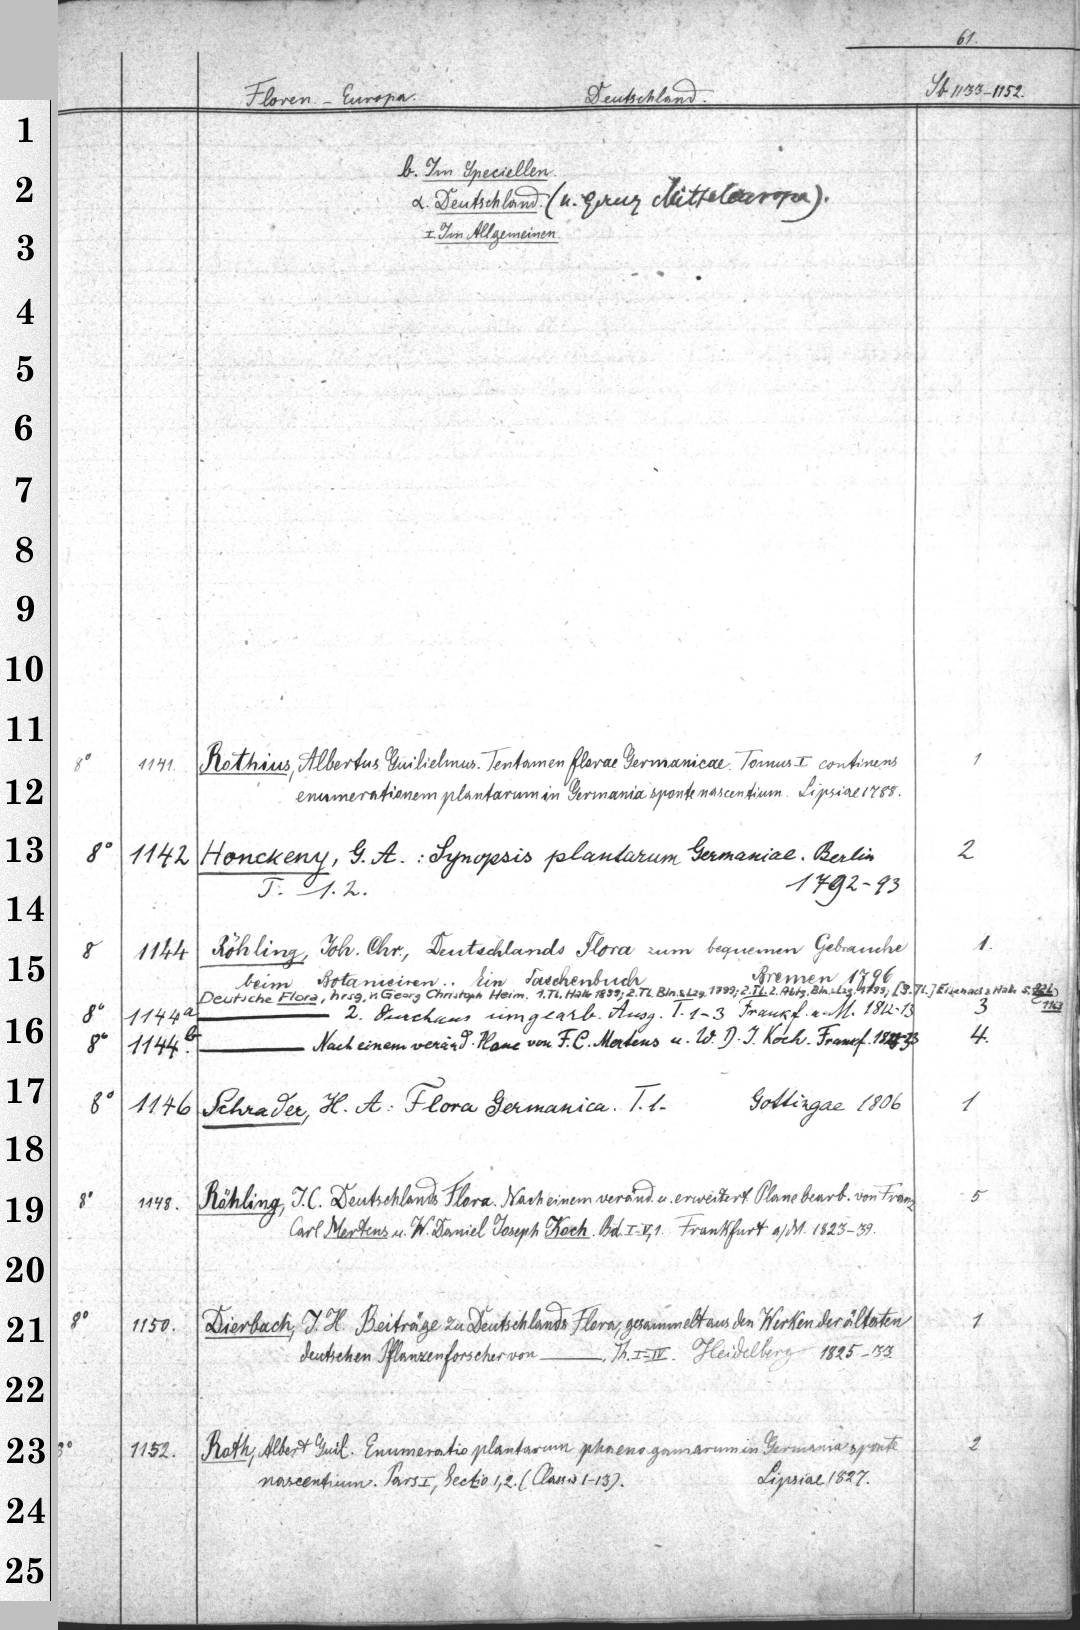 61.
Floren - Europa. Deutschland. Sb 1133-1152.
b. Im Speciellen.
α. Deutschland. (u. ganz Mitteleuropa).
I. Im Allgemeinen.
8° 1141. Rothius, Albertus Guilielmus. Tentamen florae Germanicae. Tomus I continens 1
enumerationem plantarum in Germania sponte nascentium. Lipsiae 1788.
8° 1142 Honckeny, G. A. : Synopsis plantarum Germaniae. Berlin 2
T. 1. 2. 1792-93
8 1144 Röhling, Joh. Chr., Deutschlands Flora zum bequemen Gebrauche 1.
beim Botanisiren. Ein Taschenbuch Bremen 1796
Deutsche Flora, hrsg. v. Georg Christoph Heim. 1. Tl. Halb 1799; 2. Tl. Bln. u. Lzg. 1799; 2. Tl. 2. Abtg. Bln. u. Lzg. 1799; [3. Tl.]
8° 1144a ——— 2. durchaus umgearb. Ausg. T. 1-3 Frankf. a. M. 1812-13 3
8° 1144b ——— Nach einem veränd. Plane von F. C. Mertens u. W. D. J. Koch. Frankf. 4.
8° 1146 Schrader, H. A: Flora Germanica. T. 1- Gottingae 1806 1
8° 1148. Röhling, J. C. Deutschlands Flora. Nach einem veränd. u. erweitert. Plane bearb. von Franz 5
Carl Mertens u. W. Daniel Joseph Koch. Bd. I-V,1. Frankfurt a/M. 1823-39.
8° 1150. Dierbach, J. H. Beiträge zu Deutschlands Flora, gesammelt aus den Werken der ältesten 1
deutschen Pflanzenforscher von ———. Th. I-IV. Heidelberg 1825-33
8° 1152. Roth, Albert Guil. Enumeratio plantarum phaenogamarum in Germania sponte 2
nascentium. Pars I, Sectio 1,2. (Classis 1-13). Lipsiae 1827.
1
2
3
4
5
6
7
8
9
10
11
12
13
14
15
16
17
18
19
20
21
22
23
24
25